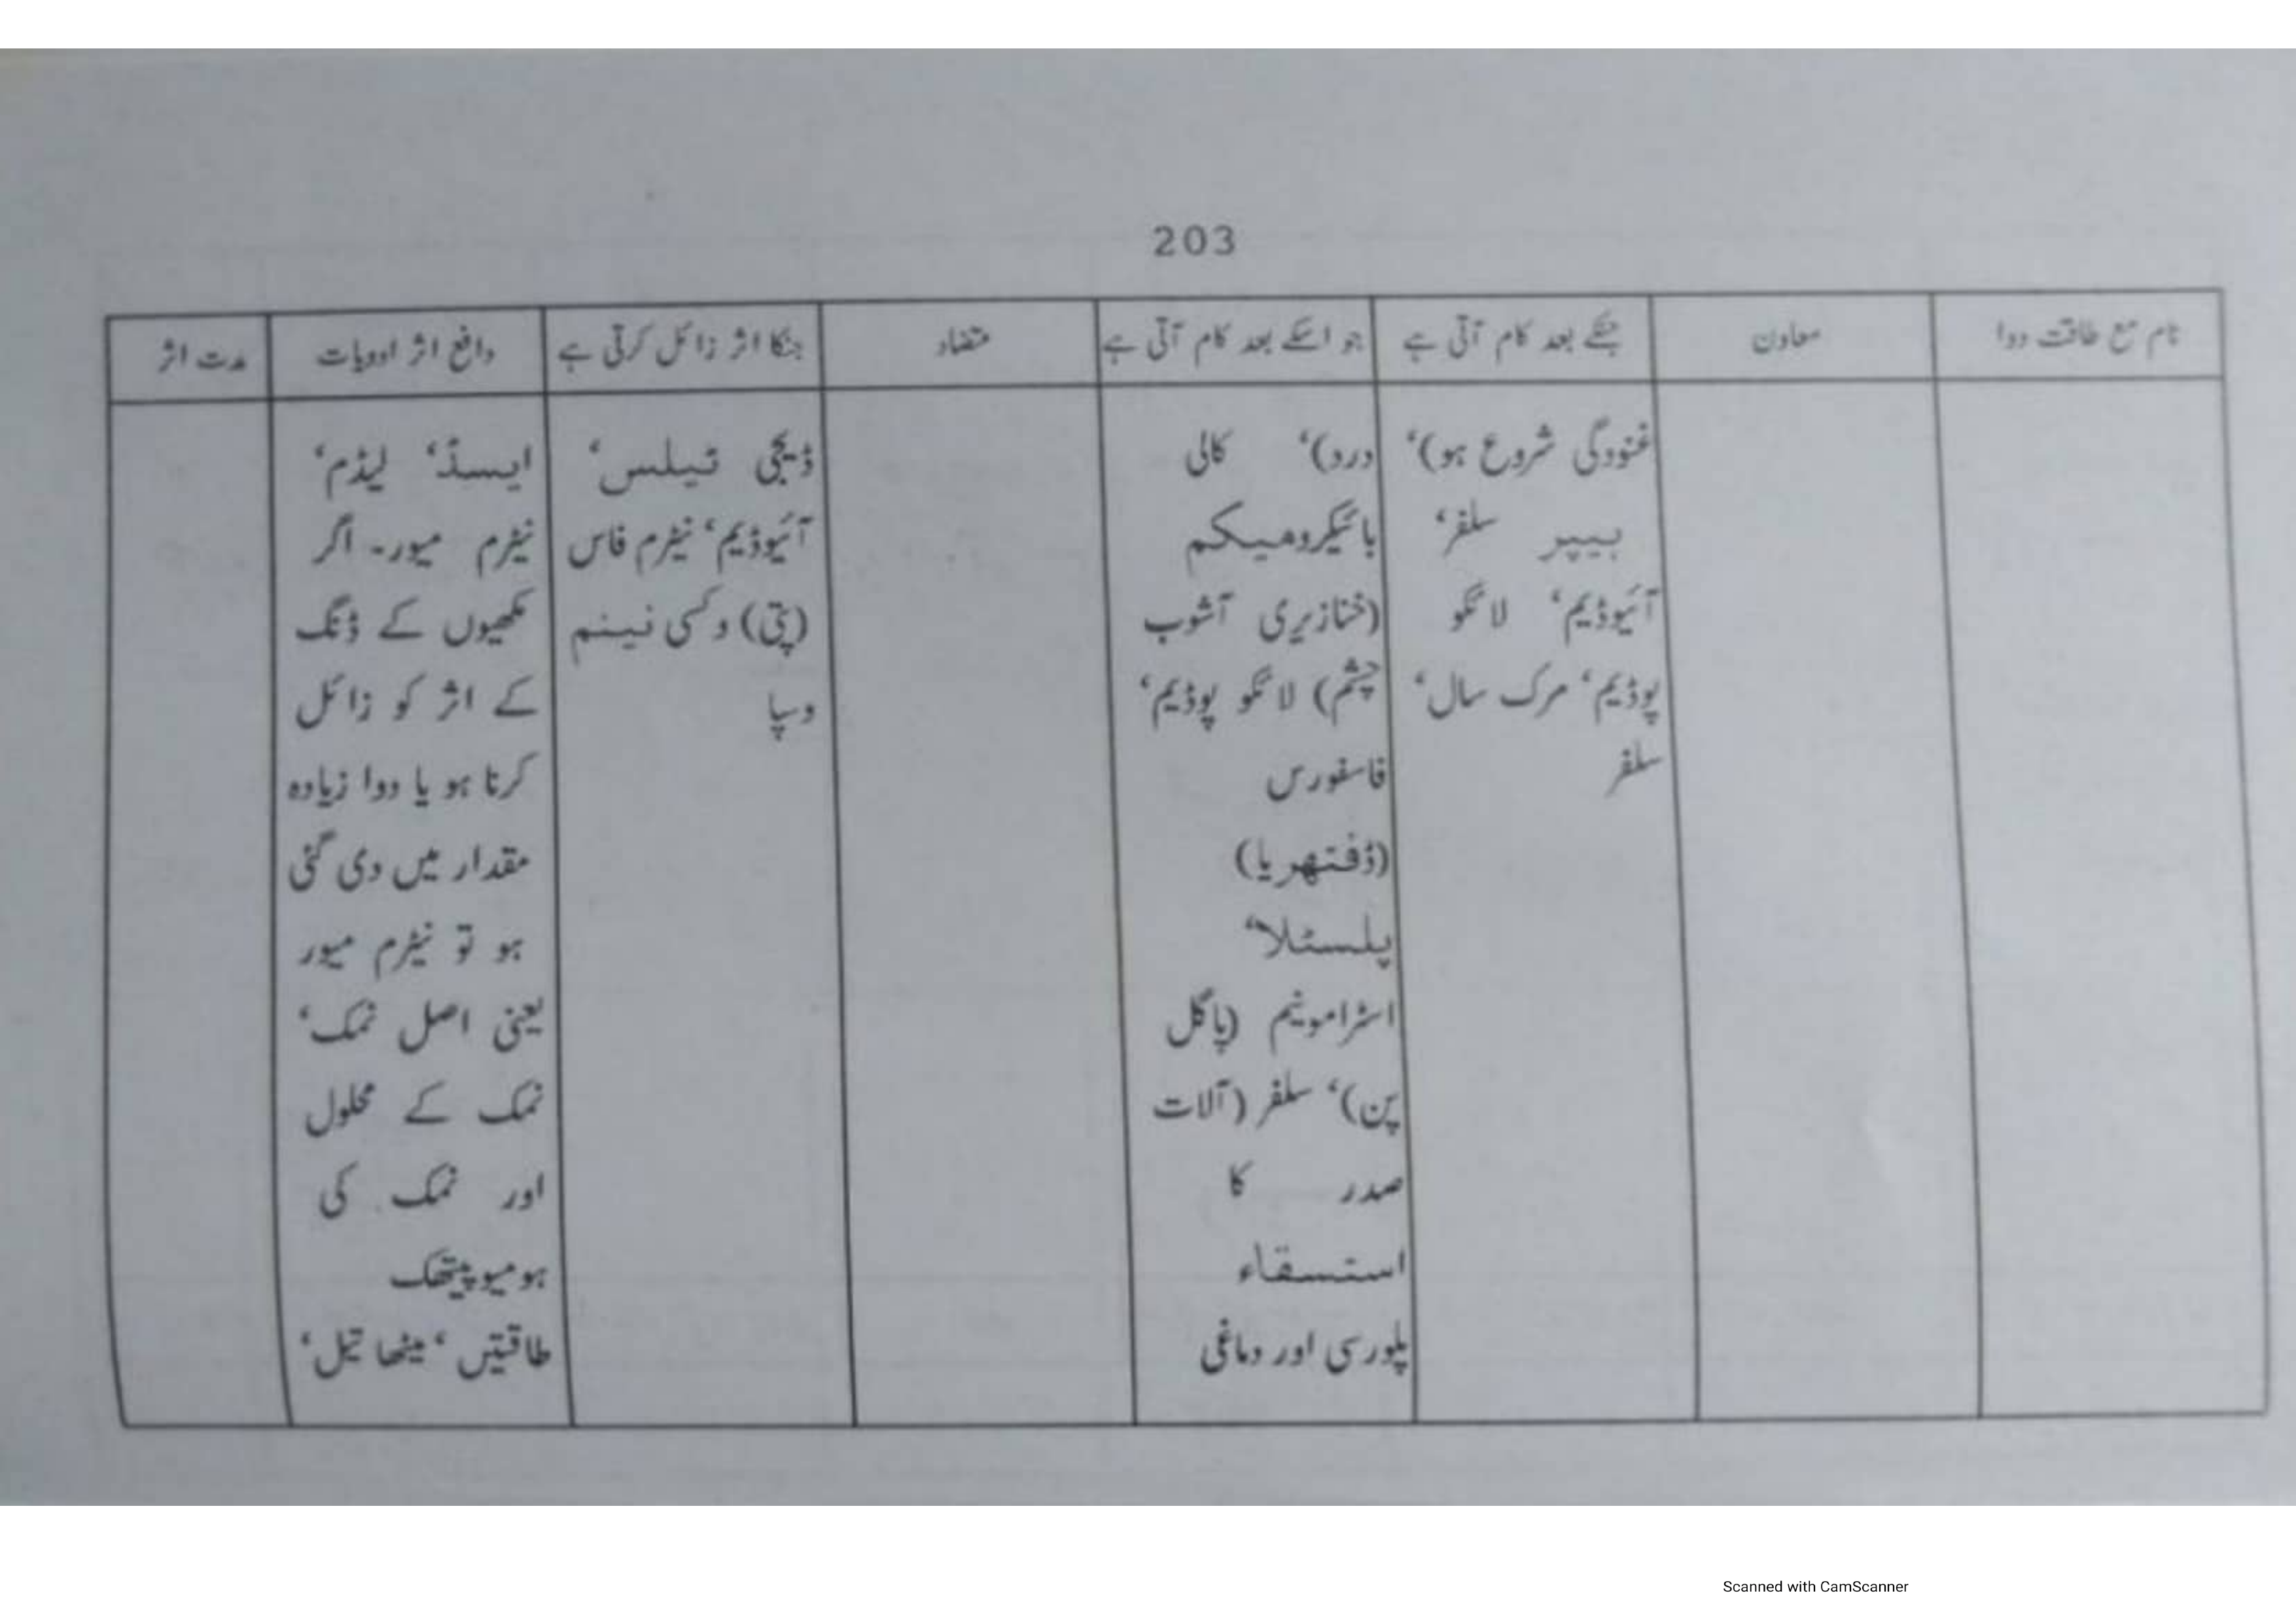 203
نام مع طاقت دوا
معاون
جسکے بعد کام آتی ہے
جو اسکے بعد کام آتی ہے
متضاد
جنکا اثر زائل کرتی ہے
دافع اثر ادویات
مدت اثر
غنودگی شروع ہو)‘
ہیپر سلفر‘
آئیوڈیم‘ لائکو
پوڈیم‘ مرک سال‘
سلفر
درد)‘ کالی
بائیکرومیکم
(خنازیری آشوب
چشم) لائکو پوڈیم‘
فاسفورس
(ڈفتھریا)
پلسٹلا‘
اسٹرامونیم (پاگل
پن)‘ سلفر (آلات
صدر کا
استسقاء
پلورسی اور دماغی
ڈیجی ٹیلس‘
آئیوڈیم‘ نیٹرم فاس
(پتی) وکسی نینم
وسپا
ایسڈ‘ لیڈم‘
نیٹرم میور۔ اگر
مکھیوں کے ڈنگ
کے اثر کو زائل
کرنا ہو یا دوا زیادہ
مقدار میں دی گئی
ہو تو نیٹرم میور
یعنی اصل نمک‘
نمک کے محلول
اور نمک کی
ہومیوپیتھک
طاقتیں‘ میٹھا تیل‘
Scanned with CamScanner